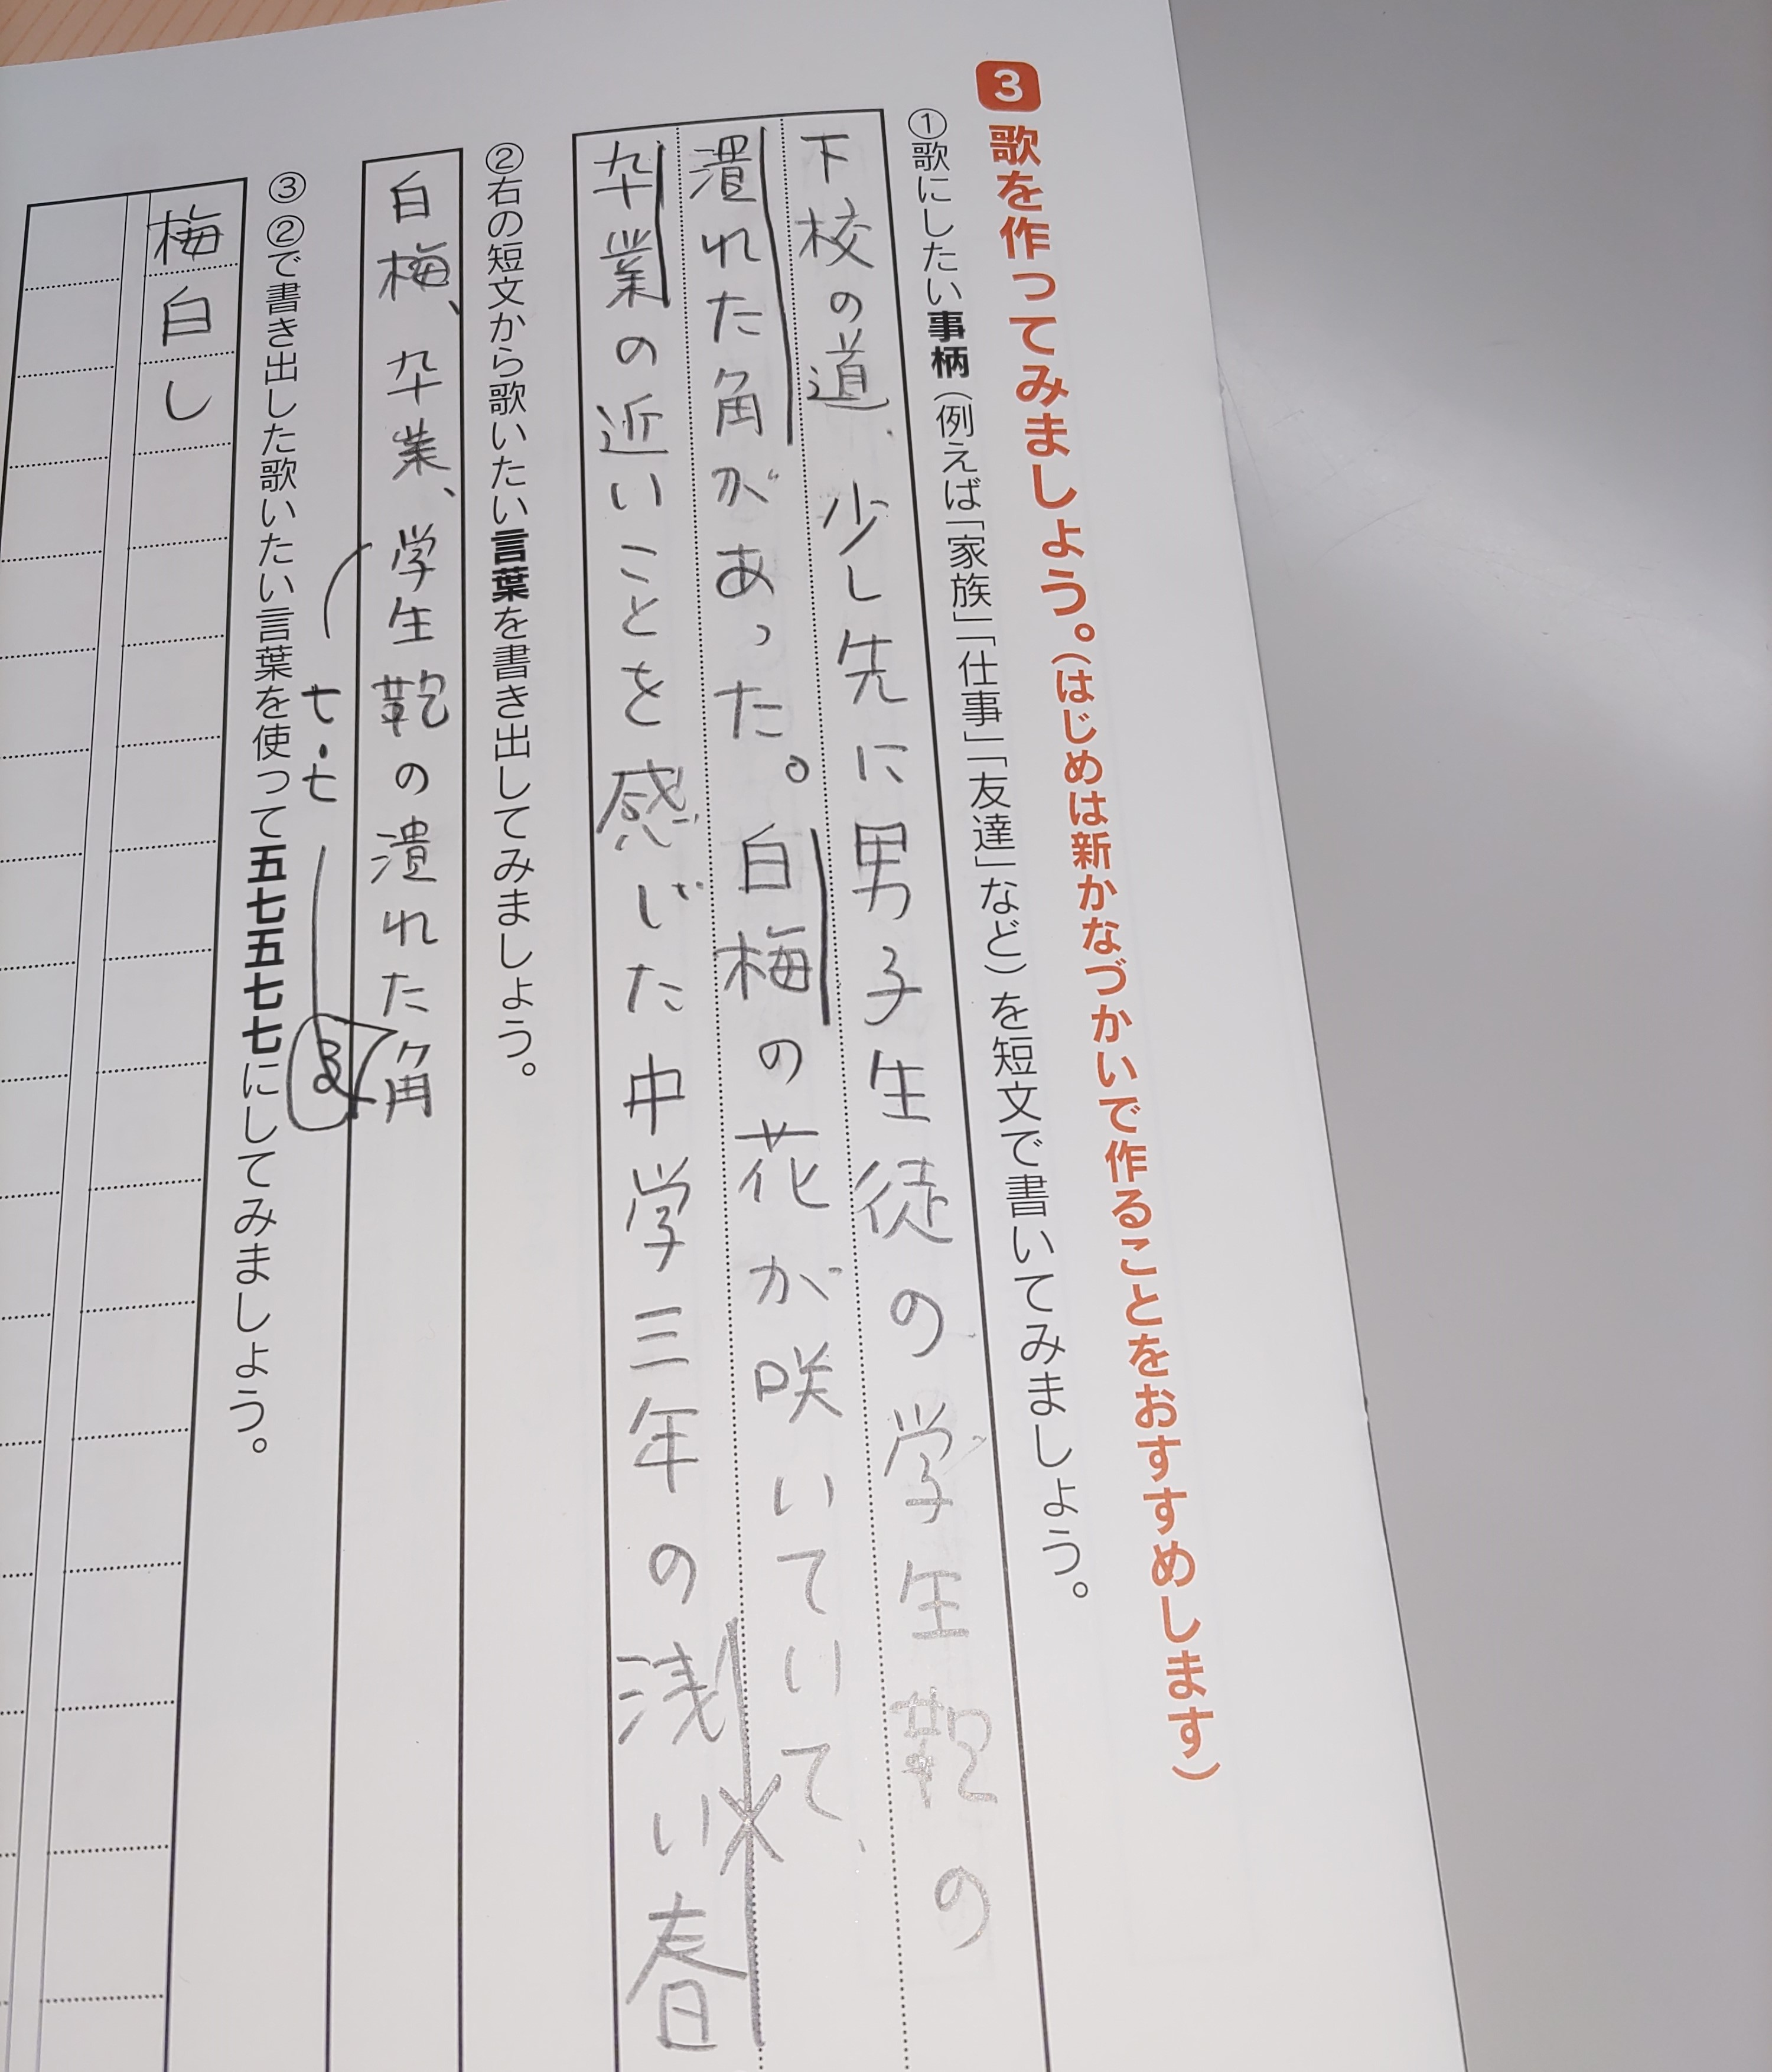 3 歌を作ってみましょう。（はじめは新かなづかいで作ることをおすすめします）
①歌にしたい事柄（例えば「家族」「仕事」「友達」など）を短文で書いてみましょう。
下校の道、少し先に男子生徒の学生鞄の
潰れた角があった。白梅の花が咲いていて、
卒業の近いことを感じた中学三年の浅い春
②右の短文から歌いたい言葉を書き出してみましょう。
白梅、卒業、学生鞄の潰れた角
七・七
③②で書き出した歌いたい言葉を使って五七五七七にしてみましょう。
梅白し